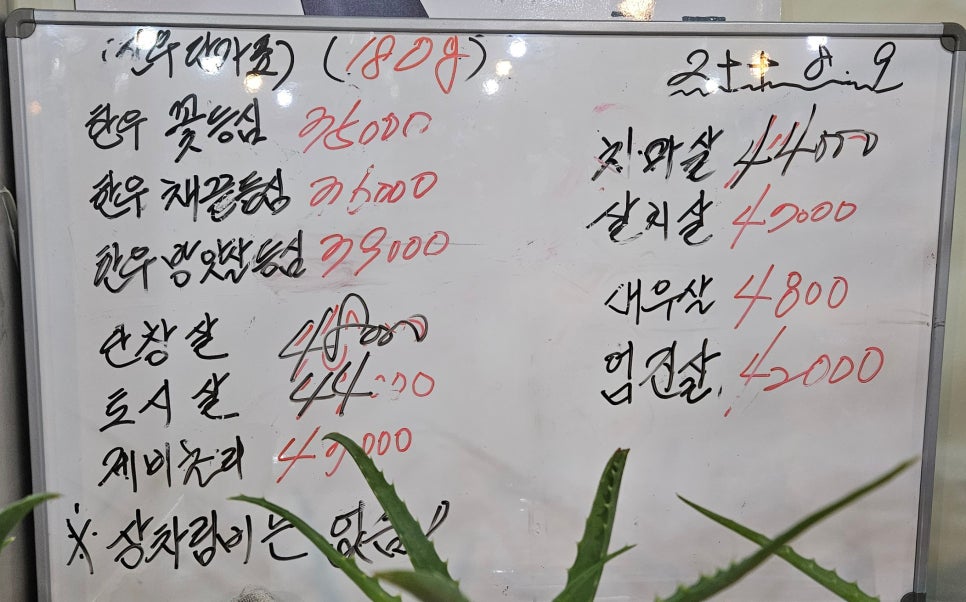 (한우단가표) (180g)
2++ 8.9
한우 꽃등심 35000
한우 채끝등심
한우 39000
안창살 48000
토시살 44000
제비추리
치마살 44000
살치살 43000
새우살 4800
업진살 42000
※ 상차림비는 없음!